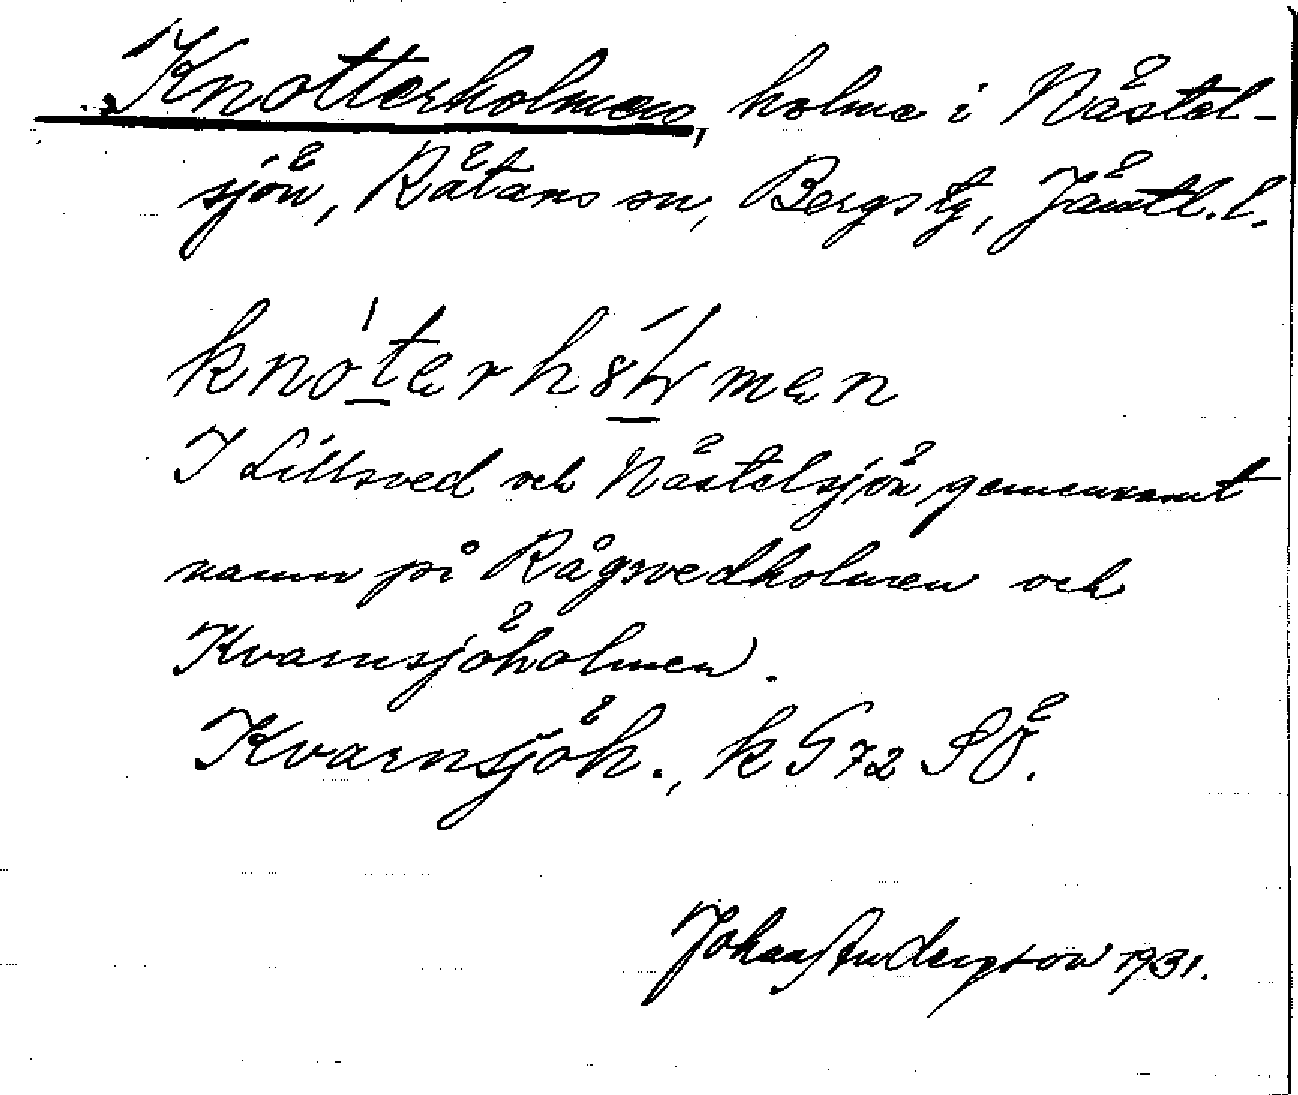 Knotterholmen, holme i Nästel-
sjön, Rätans sn, Bergs tg, Jämtl. l.
I Lillsved och Nästelsjön gemensamt
namn på Rågsvedholmen och
Kvarnsjöholmen.
Kvarnsjöh., k G 72 SÖ.
Johan Anderson 1931.